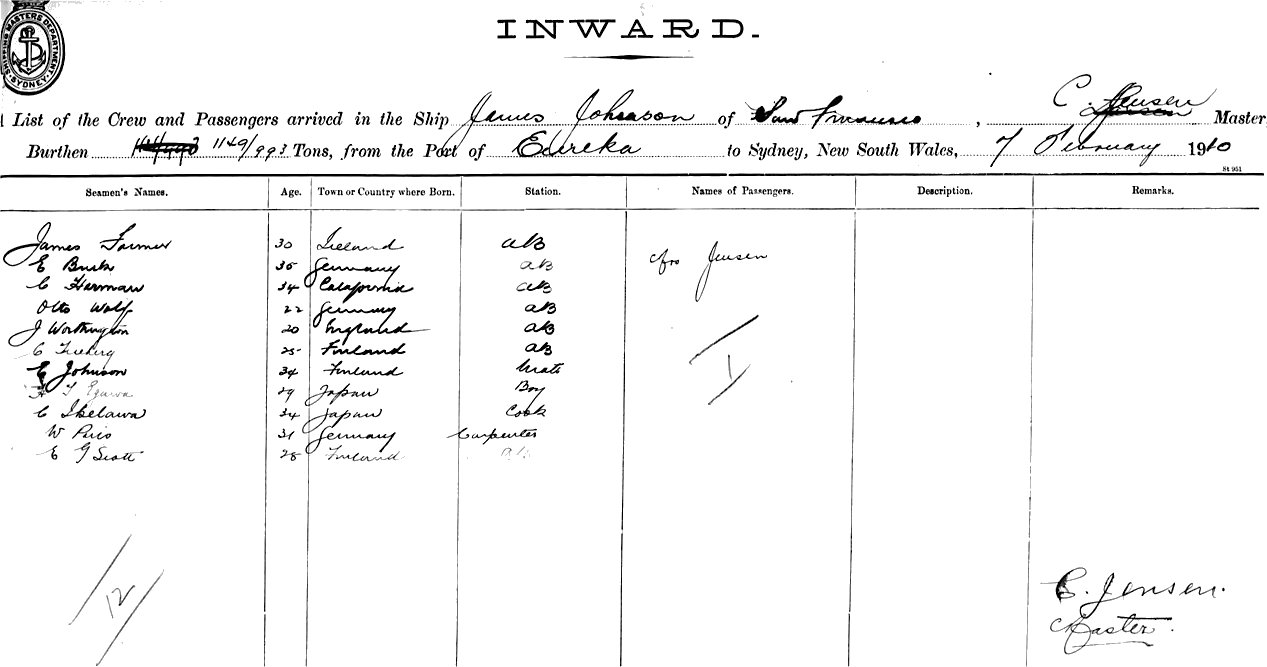 SHIPPING MASTERS DEPARTMENT. SYDNEY
INWARD.
List of the Crew and Passengers arrived in the Ship James Johnson of San Francisco, C. Jensen Master
Burthen 1149/993 Tons, from the Port of Eureka to Sydney, New South Wales, 7 February 1910
St 951
Seamen's Names. Age. Town or Country where Born. Station. Names of Passengers. Description. Remarks.
James Farmer 30 Ireland AB
E 35 Germany AB Mrs Jensen
C Harman 34 California AB
Otto Wolf 22 Germany AB
J Worthington 20 England AB
C 25 Finland AB
E Johnson 34 Finland Mate
T Egawa 29 Japan Boy
C Ikelawa 34 Japan Cook
W 31 Germany Carpenter
E G Scott 28 Finland AB
1
12
C. Jensen.
Master.